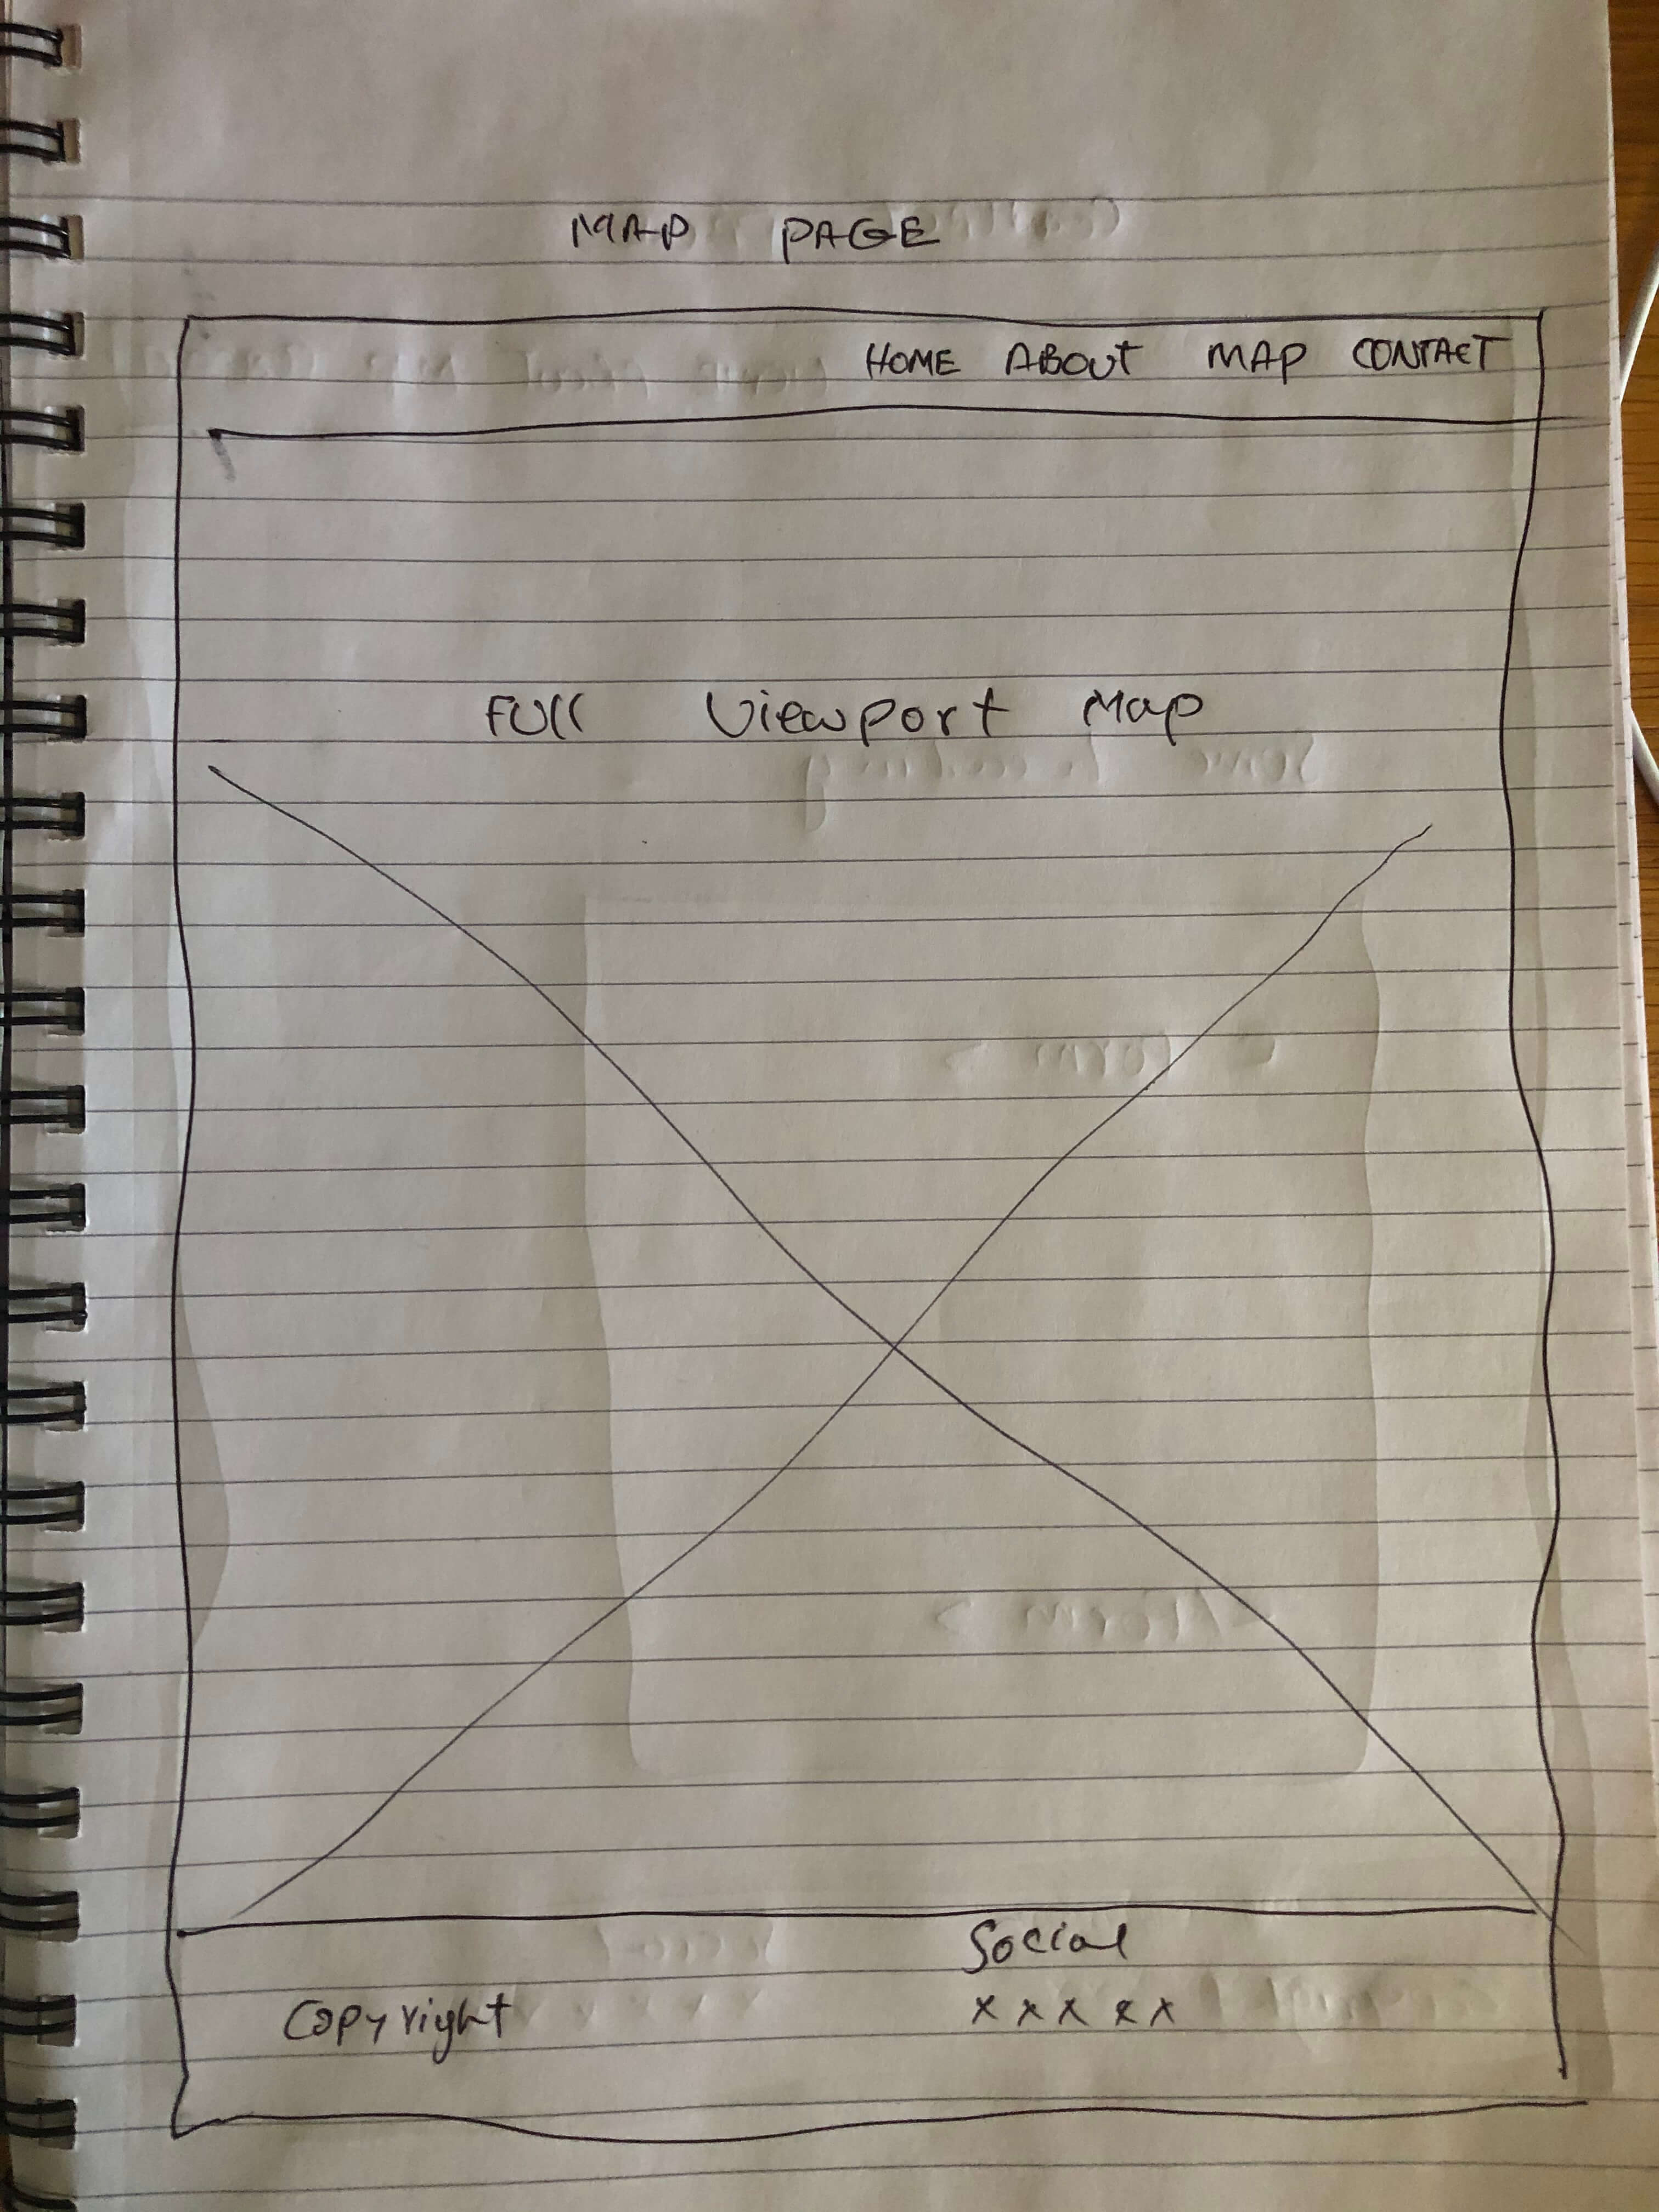 MAP PAGE
HOME ABOUT MAP CONTACT
FUll Viewport Map
Social
Copyright x x x x x